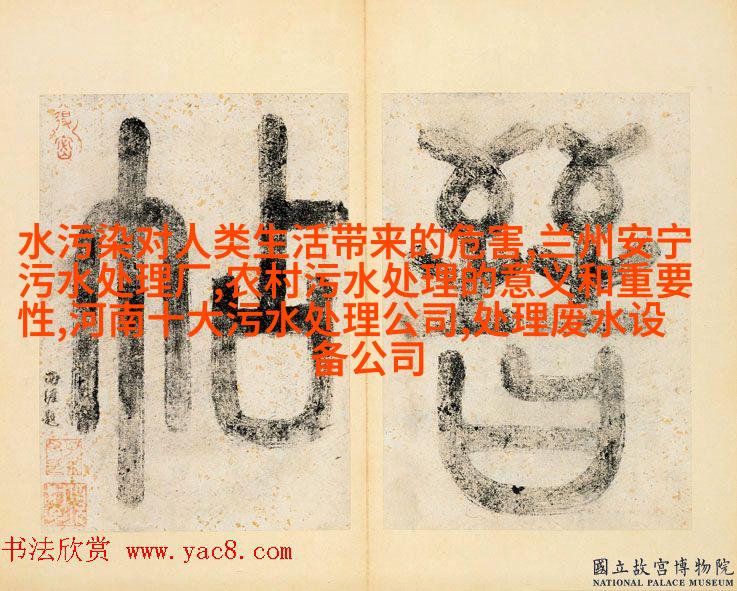 晉帖
西涯題
水污染对人类生活带来的危害,兰州安宁
污水处理厂,农村污水处理的意义和重要
性,河南十大污水处理公司,处理废水设
备公司
书法欣赏 www.yac8.com
國立故宮博物院
NATIONAL PALACE MUSEUM